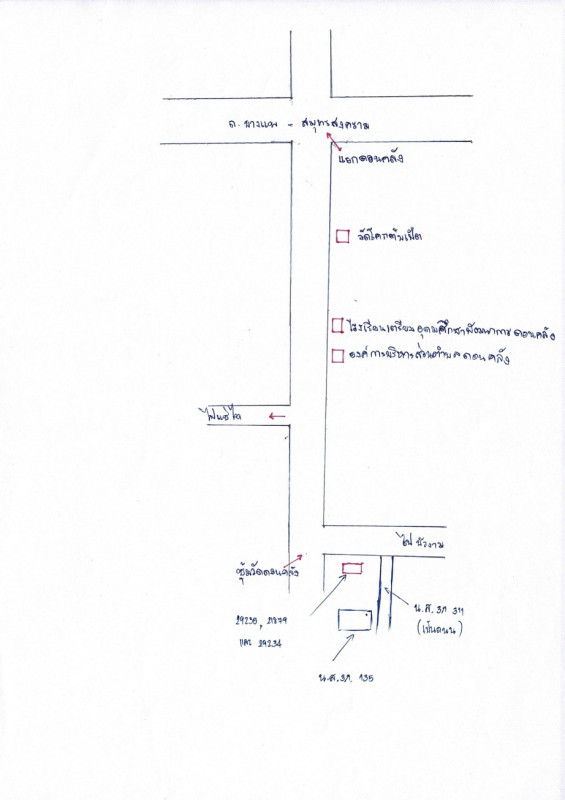 ถ. บางแพ - สมุทรสงคราม
แยกดอนคลัง
วัดโคกตับเป็ด
โรงเรียนเตรียมอุดมศึกษาพัฒนาการดอนคลัง
องค์การบริหารส่วนตำบลดอนคลัง
ไป
ซุ้มวัดดอนคลัง
ไป บัวงาม
น.ส. 3ก 311
(เป็นถนน)
29235,
และ 29234
น.ส.3ก. 135